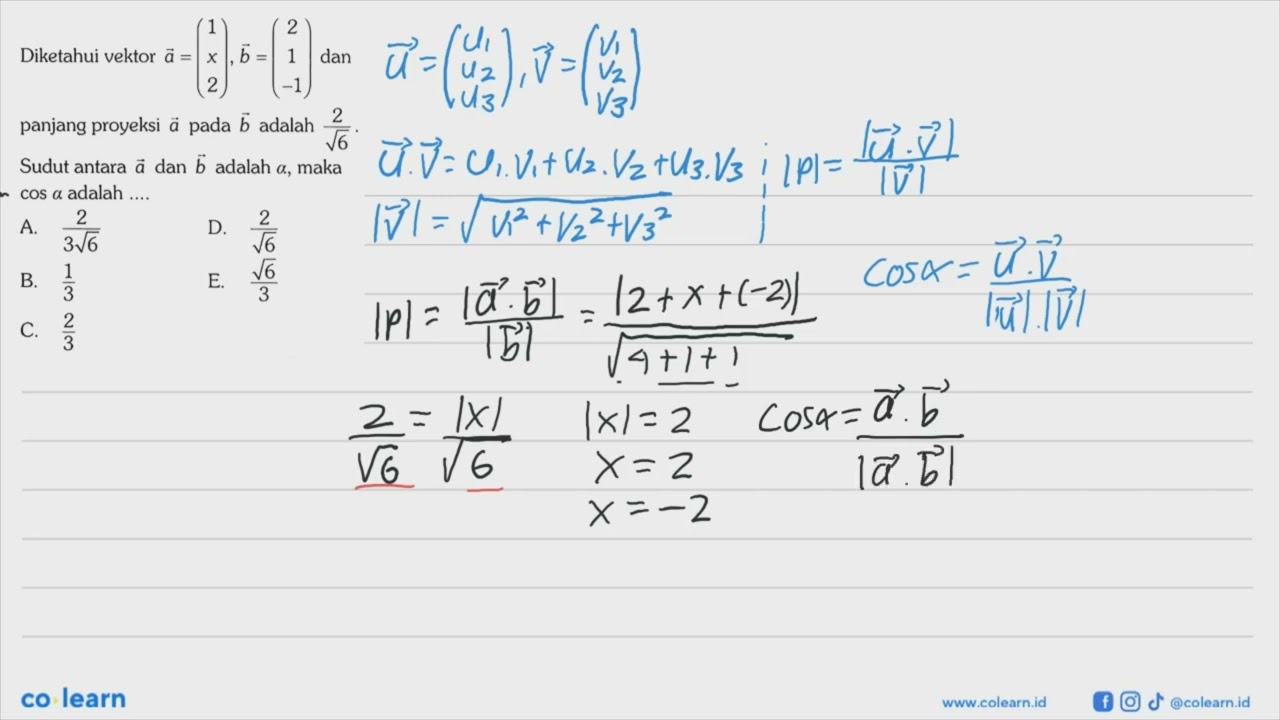 Diketahui vektor a⃗ = (1 x 2), b⃗ = (2 1 −1) dan
panjang proyeksi a⃗ pada b⃗ adalah 2/√6.
Sudut antara a⃗ dan b⃗ adalah α, maka
cos α adalah ....
A. 2/(3√6)
B. 1/3
C. 2/3
D. 2/√6
E. √6/3
u⃗ = (u1 u2 u3), v⃗ = (v1 v2 v3)
u⃗ . v⃗ = u1 . v1 + u2 . v2 + u3 . v3 ; |p| = |u⃗ . v⃗| / |v⃗|
|v⃗| = √(v1² + v2² + v3²)
cos α = u⃗ . v⃗ / |u⃗| . |v⃗|
|p| = |a⃗ . b⃗| / |b⃗| = |2 + x + (−2)| / √(4 + 1 + 1)
2/√6 = |x|/√6
|x| = 2
x = 2
x = −2
cos α = a⃗ . b⃗ / |a⃗ . b⃗|
co learn
www.colearn.id
@colearn.id